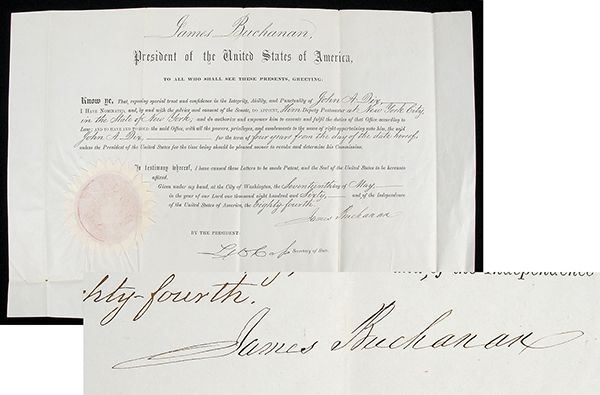 James Buchanan,
President of the United States of America,
TO ALL WHO SHALL SEE THESE PRESENTS, GREETING:
Know ye, That, reposing special trust and confidence in the Integrity, Ability, and Punctuality of John A. Dix,
I HAVE NOMINATED, and, by and with the advice and consent of the Senate, DO APPOINT, Him Deputy Postmaster at New York City,
in the State of New York; and do authorize and empower him to execute and fulfil the duties of that Office according to
Law; AND TO HAVE AND TO HOLD the said Office, with all the powers, privileges, and emoluments to the same of right appertaining unto him, the said
John A. Dix, for the term of four years from the day of the date hereof,
unless the President of the United States for the time being should be pleased sooner to revoke and determine his Commission.
In testimony whereof, I have caused these Letters to be made Patent, and the Seal of the United States to be hereunto
affixed.
Given under my hand, at the City of Washington, the Seventeenth of May
in the year of our Lord one thousand eight hundred and Sixty, and of the Independence
of the United States of America, the Eighty-fourth.
James Buchanan
BY THE PRESIDENT:
Secretary of State.
of the Independence
hty-fourth.
James Buchanan